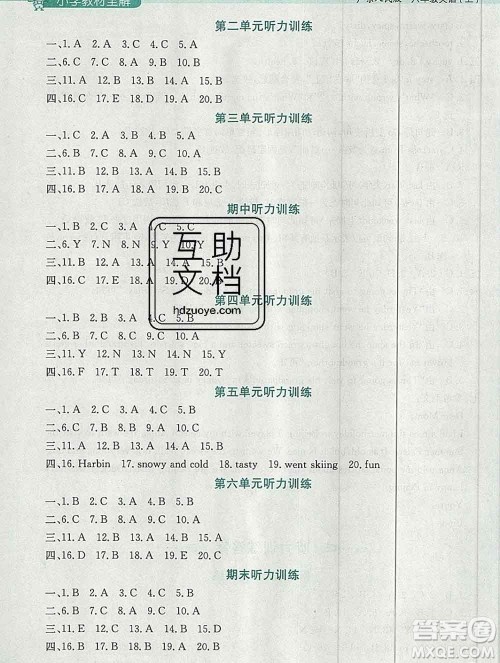 小学教材全解
第二单元听力训练
一、1. A 2. A 3. C 4. B 5. A
二、6. C 7. C 8. A 9. B 10. B
三、11. A 12. B 13. A 14. B 15. A
四、16. C 17. E 18. D 19. A 20. B
第三单元听力训练
一、1. B 2. A 3. B 4. C 5. A
二、6. B 7. C 8. A 9. C 10. A
三、11. B 12. B 13. A 14. A 15. A
四、16. D 17. C 18. E 19. A 20. B
期中听力训练
一、1. B 2. A 5. C
二、6. Y 7. N 10. Y
三、11. B 12. 15. B
四、16. B 17. 20. A
第四单元听力训练
一、1. B 2. A 5. B
二、6. B 7. C 8. A 9. C 10. A
三、11. Y 12. N 13. N 14. N 15. Y
四、16. F 17. T 18. F 19. F 20. T
第五单元听力训练
一、1. B 2. C 3. A 4. C 5. B
二、6. A 7. B 8. A 9. C 10. A
三、11. A 12. B 13. A 14. A 15. B
四、16. Harbin 17. snowy and cold 18. tasty 19. went skiing 20. fun
第六单元听力训练
一、1. B 2. B 3. A 4. C 5. A
二、6. C 7. B 8. B 9. A 10. C
三、11. B 12. A 13. A 14. B 15. A
四、16. D 17. E 18. A 19. B 20. C
期末听力训练
一、1. B 2. A 3. C 4. B 5. A
二、6. A 7. B 8. B 9. C 10. A
三、11. B 12. A 13. A 14. B 15. A
四、16. D 17. E 18. C 19. B 20. A
互助
文档
hdzuoye.com
作业帮
MXQE.COM